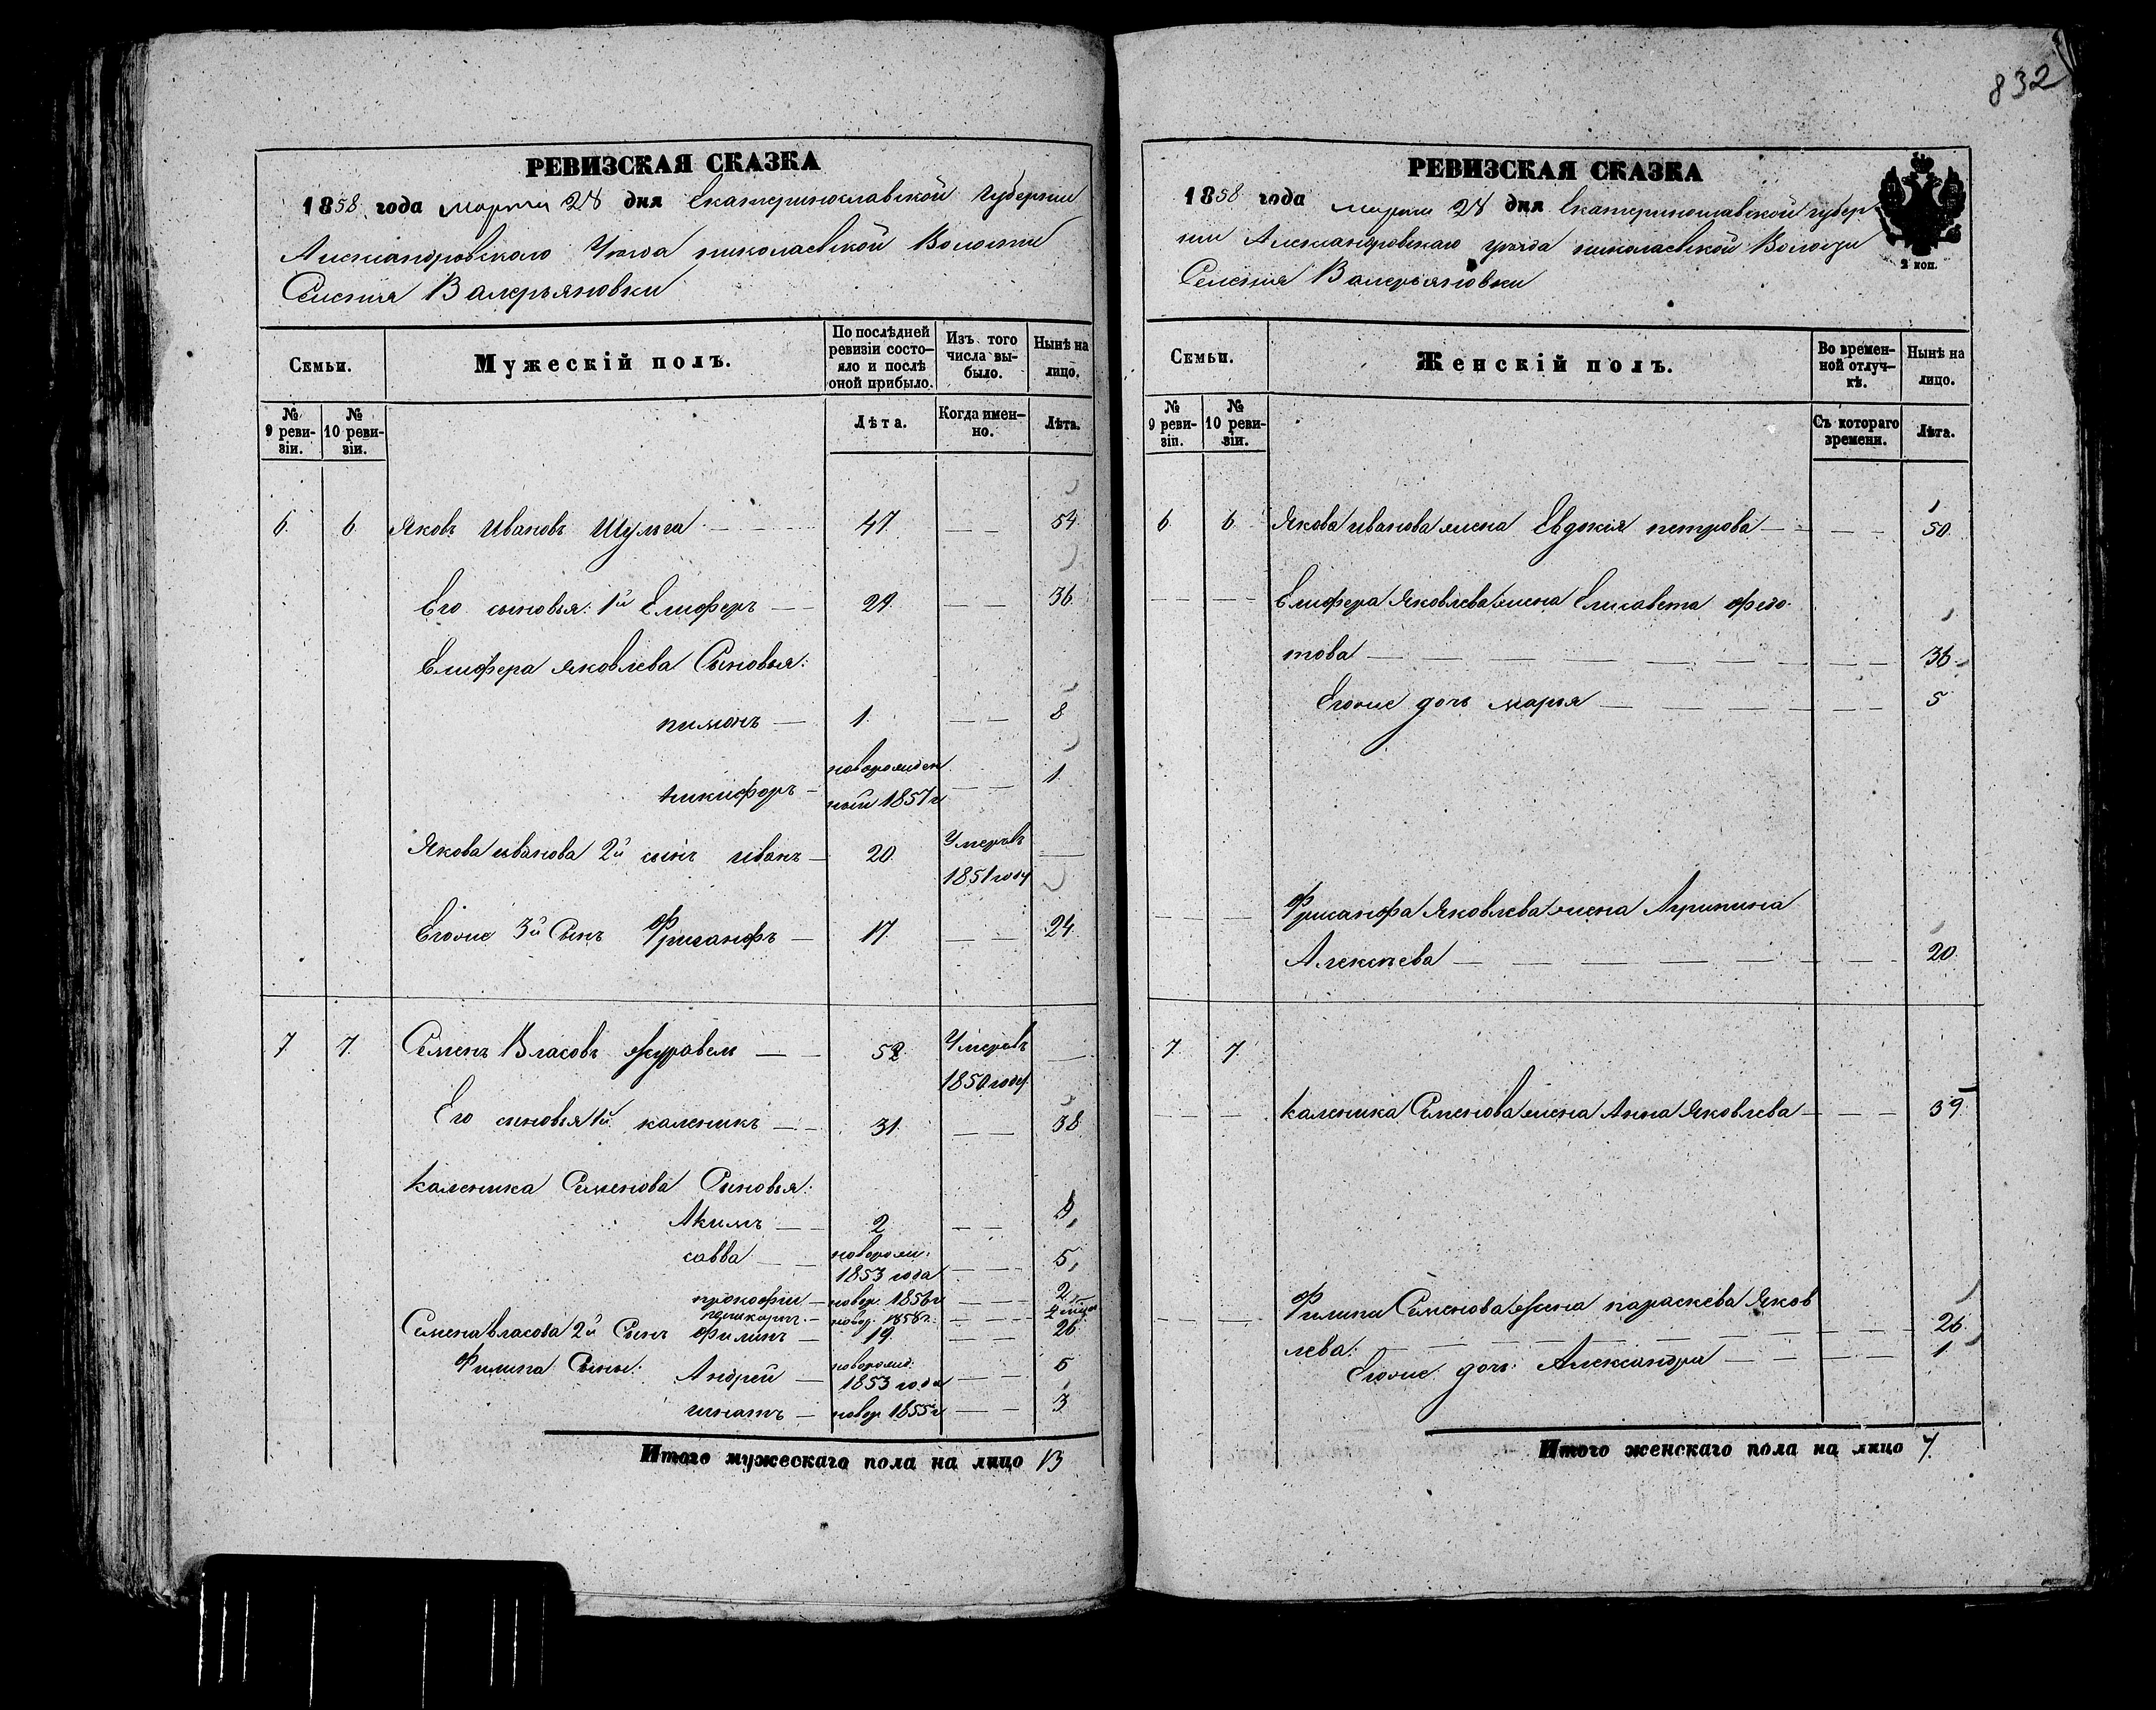 832
РЕВИЗСКАЯ СКАЗКА
1858 года марта 28 дня Екатеринославской Губернии
Александровского Уезда николаевской Волости
Селения Валерьяновки
Семьи.
Мужескій полъ.
По послѣдней ревизіи состояло и послѣ оной прибыло.
Изъ того числа выбыло.
Нынѣ на лицо.
№ 9 ревизіи.
№ 10 ревизіи.
Лѣта.
Когда именно.
Лѣта.
6 6 Яковъ Ивановъ Шульга 47 54
Его сыновья: 1й Елиферъ 29 36
Елифера Яковлева Сыновья:
пимонъ 1 8
никифоръ новорожден ный 1857 г 1
Якова иванова 2й сынъ иванъ 20 Умеръ 1851 году
Егоже 3й Сынъ Фрисанфъ 17 24
7 7 Семенъ Власовъ Журавель 52 Умеръ 1850 году
Его сыновья 1й каленикъ 31 38
каленика Семенова Сыновья:
Акимъ 2 9
савва новорож: 1853 года 5
прокофии новор. 1856 г 2
новор. 1858 г.
Семена власова 2й Сынъ филипъ 19 26
Филипа Сыны: Андрей новорожд: 1853 года 5
игнатъ новор 1855 г 3
Итого мужескаго пола на лицо 13
РЕВИЗСКАЯ СКАЗКА
1858 года марта 28 дня Екатеринославской губер
нии Александровскаго уезда николаевской Волости
Селения Валерьяновки
2 коп.
Семьи.
Женскій полъ.
Во временной отлучкѣ.
Нынѣ на лицо.
№ 9 ревизіи.
№ 10 ревизіи.
Съ котораго времени.
Лѣта.
6 6 Якова иванова жена Евдокия петрова 50
Елифера Яковлева жена Елисавета федо
това 36
Егоже дочь марья 5
Фрисанфа Яковлева жена Агрипина
Алексеева 20
7 7
каленика Семенова жена Анна Яковлева 39
Филипа Семенова Жена параскева Яков
лева: 26
Егоже дочь: Александра 1
Итого женскаго пола на лицо 7.